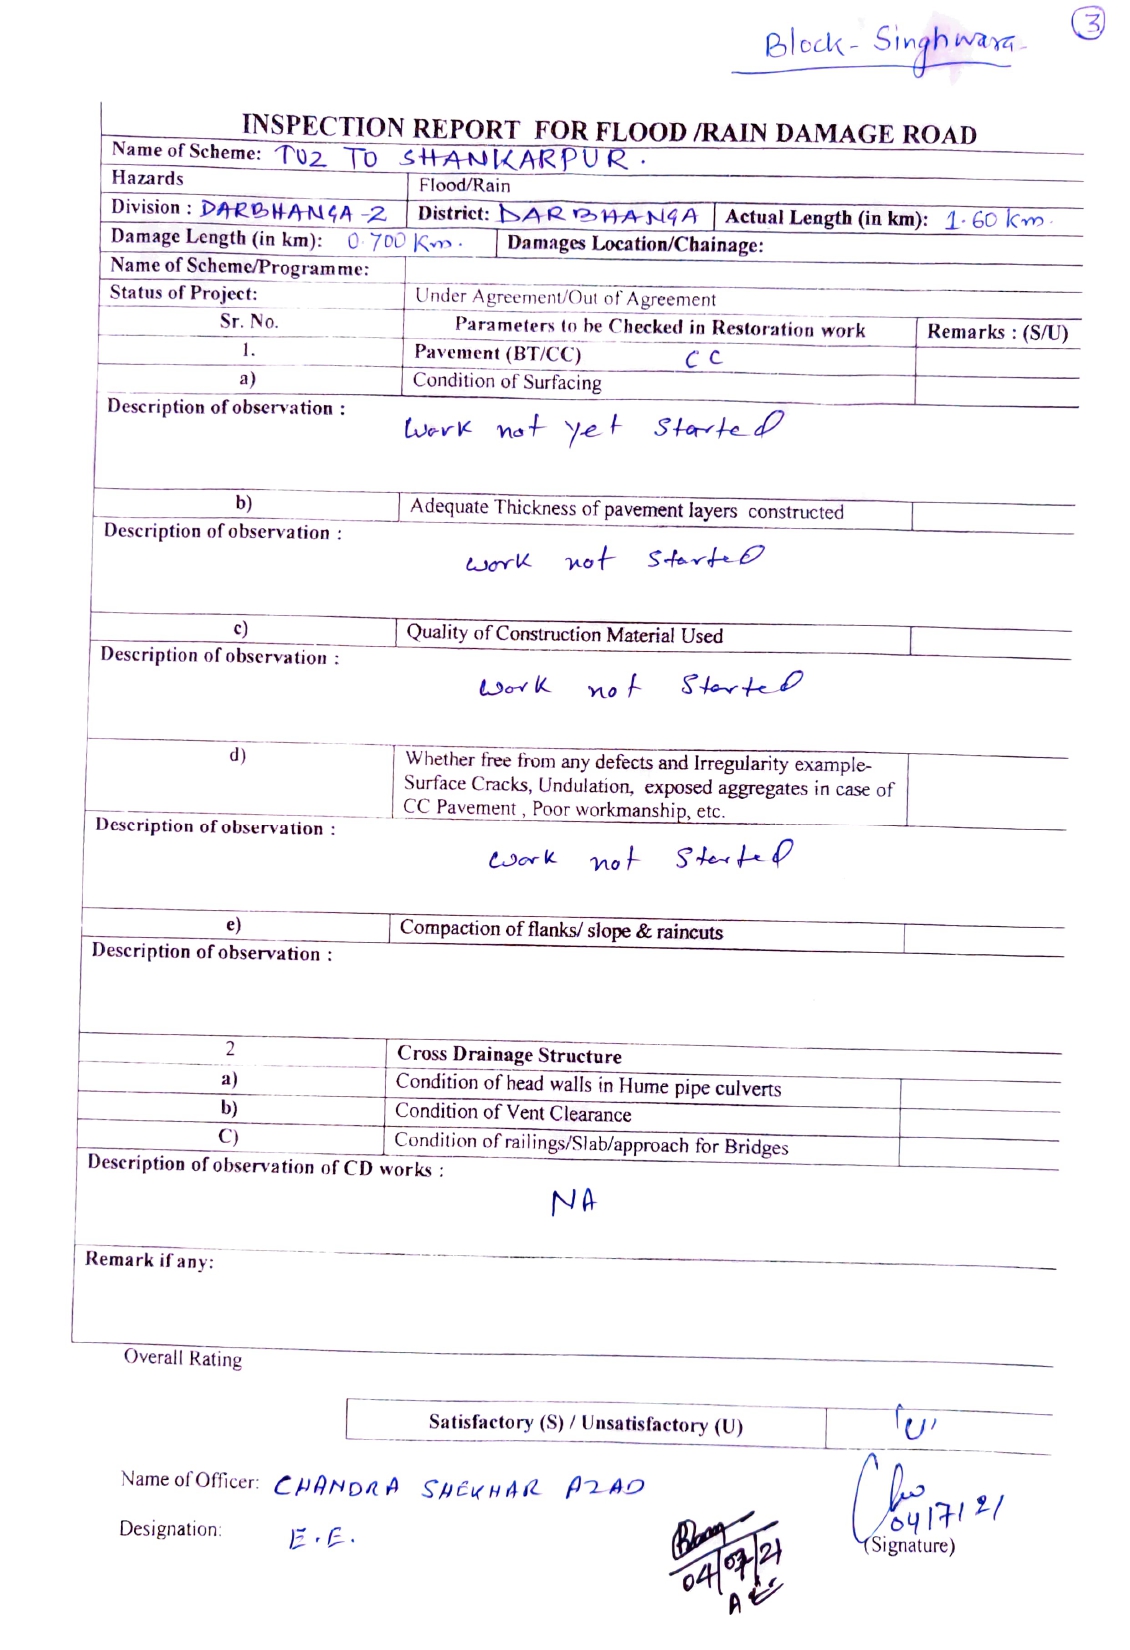 3
Block - Singhwara
INSPECTION REPORT FOR FLOOD /RAIN DAMAGE ROAD
Name of Scheme: T02 TO SHANKARPUR.
Hazards Flood/Rain
Division : DARBHANGA-2 District: DARBHANGA Actual Length (in km): 1.60 Km.
Damage Length (in km): 0.700 Km. Damages Location/Chainage:
Name of Scheme/Programme:
Status of Project: Under Agreement/Out of Agreement
Sr. No. Parameters to be Checked in Restoration work Remarks : (S/U)
1. Pavement (BT/CC) CC
a) Condition of Surfacing
Description of observation :
Work not yet started
b) Adequate Thickness of pavement layers constructed
Description of observation :
work not started
c) Quality of Construction Material Used
Description of observation :
Work not started
d) Whether free from any defects and Irregularity example-
Surface Cracks, Undulation, exposed aggregates in case of
CC Pavement , Poor workmanship, etc.
Description of observation :
work not started
e) Compaction of flanks/ slope & raincuts
Description of observation :
2 Cross Drainage Structure
a) Condition of head walls in Hume pipe culverts
b) Condition of Vent Clearance
C) Condition of railings/Slab/approach for Bridges
Description of observation of CD works :
NA
Remark if any:
Overall Rating
Satisfactory (S) / Unsatisfactory (U) 'U'
Name of Officer: CHANDRA SHEKHAR AZAD
04/7/21
Designation: E.E.
(Signature)
04/07/21